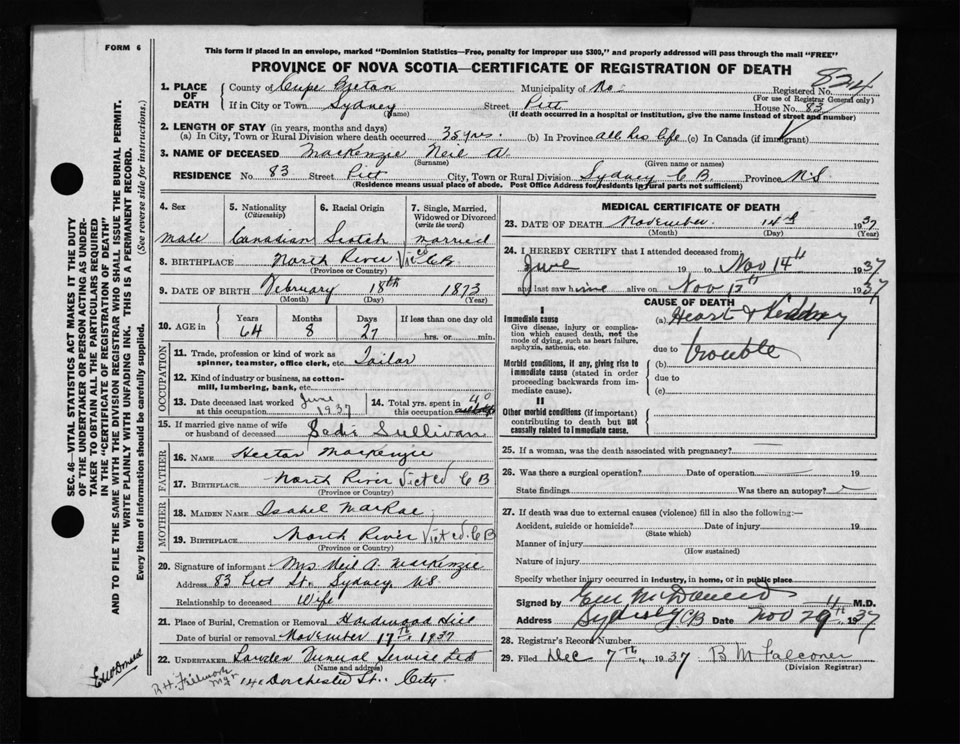 FORM 6
This form if placed in an envelope, marked "Dominion Statistics—Free, penalty for improper use $300," and properly addressed will pass through the mail "FREE"
PROVINCE OF NOVA SCOTIA—CERTIFICATE OF REGISTRATION OF DEATH
824
1. PLACE OF DEATH
County of Cape Breton Municipality of No- Registered No.
(For use of Registrar General only)
If in City or Town Sydney Street Pitt House No. 83
(Name) (If death occurred in a hospital or institution, give the name instead of street and number)
2. LENGTH OF STAY (in years, months and days)
(a) In City, Town or Rural Division where death occurred 38 yrs. (b) In Province all his life (c) In Canada (if immigrant)
3. NAME OF DECEASED MacKenzie Neil A.
(Surname) (Given name or names)
RESIDENCE No. 83 Street Pitt City, Town or Rural Division Sydney C B. Province N.S
(Residence means usual place of abode. Post Office Address for residents in rural parts not sufficient)
4. Sex
male
5. Nationality
(Citizenship)
Canadian
6. Racial Origin
Scotch
7. Single, Married, Widowed or Divorced
(write the word)
married
8. BIRTHPLACE North River Vic Co CB
(Province or Country)
9. DATE OF BIRTH February 18th 1873
(Month) (Day) (Year)
10. AGE in
Years Months Days If less than one day old
64 8 27 hrs. or min.
OCCUPATION
11. Trade, profession or kind of work as spinner, teamster, office clerk, etc. Tailor
12. Kind of industry or business, as cotton-mill, lumbering, bank, etc.
13. Date deceased last worked at this occupation June 1937
14. Total yrs. spent in this occupation 40
15. If married give name of wife or husband of deceased Sadie Sullivan
FATHER
16. NAME Hector MacKenzie
17. BIRTHPLACE North River Vict Co C B
(Province or Country)
MOTHER
18. MAIDEN NAME Isabel MacRae
19. BIRTHPLACE North River Vict Co. C B
(Province or Country)
20. Signature of informant Mrs Neil A. MacKenzie
Address 83 Pitt St. Sydney NS
Relationship to deceased Wife
21. Place of Burial, Cremation or Removal Hardwood Hill
Date of burial or removal November 17th 1937
22. UNDERTAKER Lowden Funeral Service Ltd
(Name and address)
146 Dorchester St. City.
R.H. Fillmore Mgr
MEDICAL CERTIFICATE OF DEATH
23. DATE OF DEATH November 14th 1937
(Month) (Day) (Year)
24. I HEREBY CERTIFY that I attended deceased from
June 19 to Nov 14th 1937
and last saw him alive on Nov 13th 1937
CAUSE OF DEATH
I
Immediate cause
Give disease, injury or complication which caused death, not the mode of dying, such as heart failure, asphyxia, asthenia, etc.
(a) Heart & Kidney
due to trouble
Morbid conditions, if any, giving rise to immediate cause (stated in order proceeding backwards from immediate cause).
(b)
due to
(c)
II
Other morbid conditions (if important) contributing to death but not causally related to immediate cause.
25. If a woman, was the death associated with pregnancy?
26. Was there a surgical operation? Date of operation 19
State findings Was there an autopsy?
27. If death was due to external causes (violence) fill in also the following:—
Accident, suicide or homicide? Date of injury 19
(State which)
Manner of injury
(How sustained)
Nature of injury
Specify whether injury occurred in industry, in home, or in public place
Signed by M.D.
Address Sydney CB Date Nov 29th 1937
28. Registrar's Record Number
29. Filed Dec 7th, 1937 B M Falconer
(Division Registrar)
SEC. 46—VITAL STATISTICS ACT MAKES IT THE DUTY OF THE UNDERTAKER OR PERSON ACTING AS UNDERTAKER TO OBTAIN ALL THE PARTICULARS REQUIRED IN THE "CERTIFICATE OF REGISTRATION OF DEATH"
AND TO FILE THE SAME WITH THE DIVISION REGISTRAR WHO SHALL ISSUE THE BURIAL PERMIT.
WRITE PLAINLY WITH UNFADING INK. THIS IS A PERMANENT RECORD.
Every item of information should be carefully supplied. (See reverse side for instructions.)